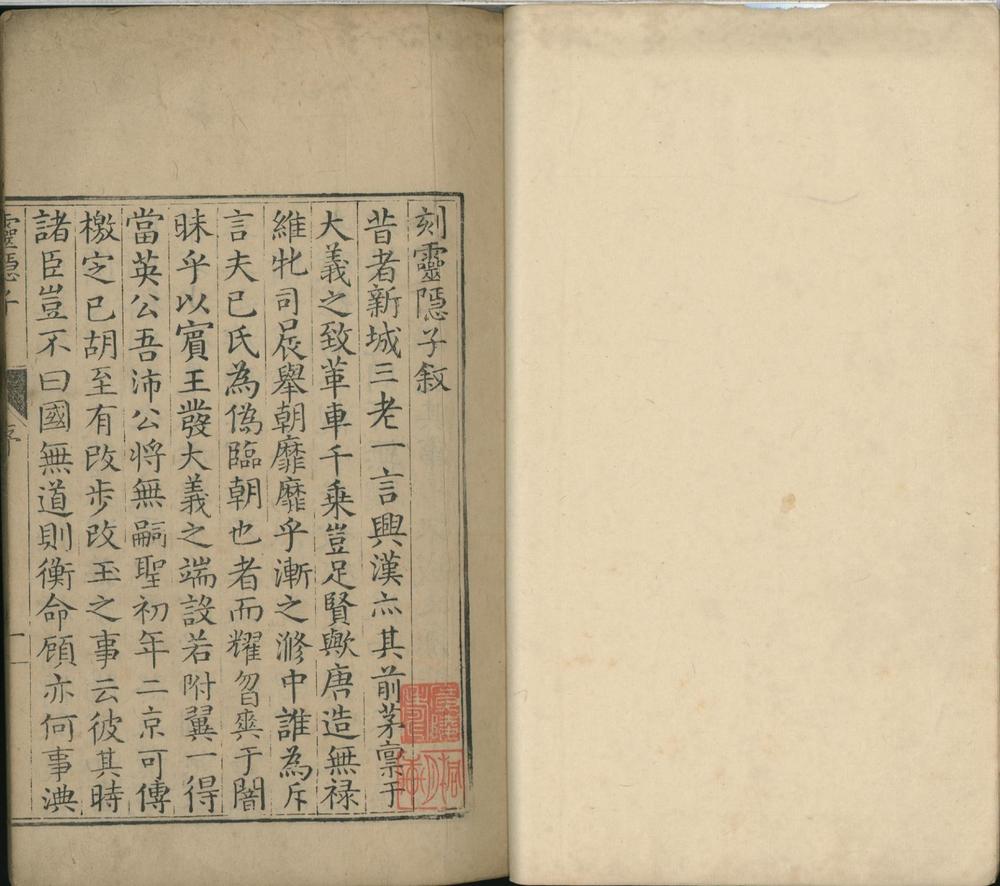 刻靈隱子敘
昔者新城三老一言興漢亦其前茅稟于
大義之致革車千乗豈足賢歟唐造無禄
維牝司晨舉朝靡靡乎漸之滫中誰為斥
言夫巳氏為偽臨朝也者而耀曶奭于闇
昧乎以賓王發大義之端設若附翼一得
當英公吾沛公将無嗣聖初年二京可傳
檄定已胡至有改步改玉之事云彼其時
諸臣豈不曰國無道則衡命顧亦何事淟
靈隱子
序
一